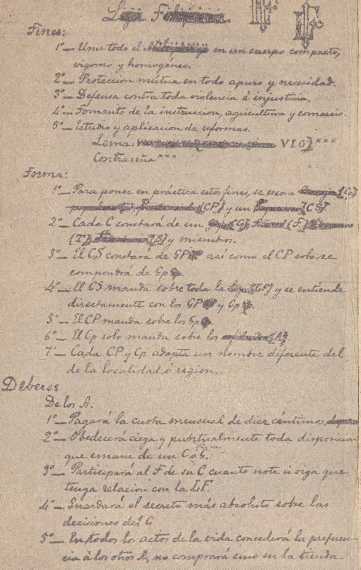 Liga Filipina
Fines:
1º— Unir todo el en un cuerpo compacto,
vigoroso y homogéneo.
2º— Proteccion mutua en todo apuro y necesidad.
3º— Defensa contra toda violencia é injusticia.
4º— Fomento de la instruccion, agricultura y comercio.
5º— Estudio y aplicacion de reformas.
Lema V.I.O.
Contraseña ***
Forma:
1º— Para poner en práctica estos fines, se crean
(CP) y un (CS)
2º— Cada C constará de un (G) (F)
(T) (S) y miembros.
3º— El CS constará de GP así como el CP solo se
compondrá de Gp
4º— El CS manda sobre toda la y se entiende
directamente con los GP y Gp
5º— El CP manda sobre los Gp
6º— El Cp solo manda sobre los (A)
7º— Cada CP y Cp adopta un nombre diferente del
de la localidad ó region.
Deberes
De los A.
1º— Pagará la cuota mensual de diez céntimos
2º— Obedecerá ciega y puntualmente toda disposicion
que emane de un C ó G.
3º— Participará al F de su C cuanto note ú oiga que
tenga relacion con la LF.
4º— Guardará el secreto más absoluto sobre las
decisiones del G
5º— En todos los actos de la vida concederá la preferen-
cia á los otros A; no comprará sino en la tienda